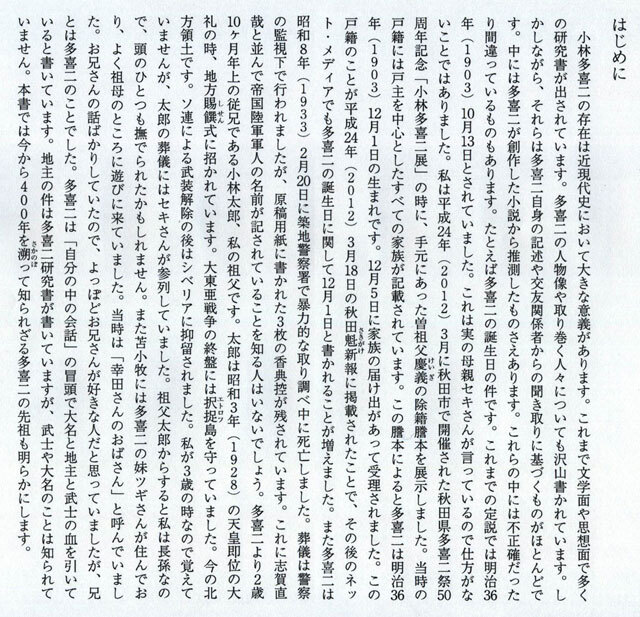 はじめに
　小林多喜二の存在は近現代史において大きな意義があります。これまで文学面や思想面で多く
の研究書が出されています。多喜二の人物像や取り巻く人々についても沢山書かれています。し
かしながら、それらは多喜二自身の記述や交友関係者からの聞き取りに基づくものがほとんどで
す。中には多喜二が創作した小説から推測したものさえあります。これらの中には不正確だった
り間違っているものもあります。たとえば多喜二の誕生日の件です。これまでの定説では明治36
年（1903）10月13日とされていました。これは実の母親セキさんが言っているので仕方がな
いことではありました。私は平成24年（2012）3月に秋田市で開催された秋田県多喜二祭50
周年記念「小林多喜二展」の時に、手元にあった曽祖父慶義の除籍謄本を展示しました。当時の
戸籍には戸主を中心としたすべての家族が記載されています。この謄本によると多喜二は明治36
年（1903）12月1日の生まれです。12月5日に家族の届け出があって受理されました。この
戸籍のことが平成24年（2012）3月18日の秋田魁新報に掲載されたことで、その後のネッ
ト・メディアでも多喜二の誕生日に関して12月1日と書かれることが増えました。また多喜二は
昭和8年（1933）2月20日に築地警察署で暴力的な取り調べ中に死亡しました。葬儀は警察
の監視下で行われましたが、原稿用紙に書かれた3枚の香典控が残されています。これに志賀直
哉と並んで帝国陸軍軍人の名前が記されていることを知る人はいないでしょう。多喜二より2歳
10ヶ月年上の従兄である小林太郎、私の祖父です。太郎は昭和3年（1928）の天皇即位の大
礼の時、地方賜饌式に招かれています。大東亜戦争の終盤には択捉島を守っていました。今の北
方領土です。ソ連による武装解除の後はシベリアに抑留されました。私が3歳の時なので覚えて
いませんが、太郎の葬儀にはセキさんが参列していました。祖父太郎からすると私は長孫なの
で、頭のひとつも撫でられたかもしれません。また苫小牧には多喜二の妹ツギさんが住んでお
り、よく祖母のところに遊びに来ていました。当時は「幸田さんのおばさん」と呼んでいまし
た。お兄さんの話ばかりしていたので、よっぽどお兄さんが好きな人だと思っていましたが、兄
とは多喜二のことでした。多喜二は「自分の中の会話」の冒頭で大名と地主と武士の血を引いて
いると書いています。地主の件は多喜二研究書が書いていますが、武士や大名のことは知られて
いません。本書では今から400年を溯って知られざる多喜二の先祖も明らかにします。